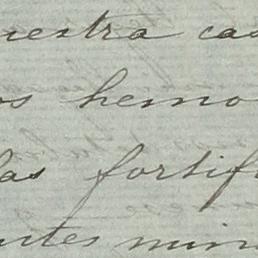 uestra cas
os hemo
las fortif
ntes min